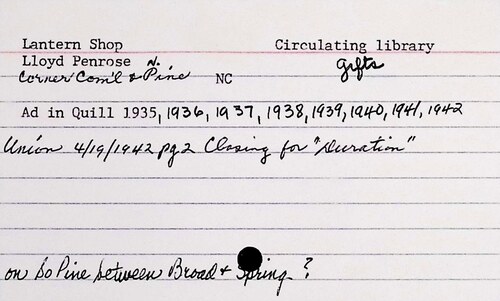 Lantern Shop Circulating library
Lloyd Penrose N. gifts
Corner Com'l & Pine NC
Ad in Quill 1935, 1936, 1937, 1938, 1939, 1940, 1941, 1942
Union 4/19/1942 pg 2 Closing for "Duration"
on So Pine between Broad + Spring ?